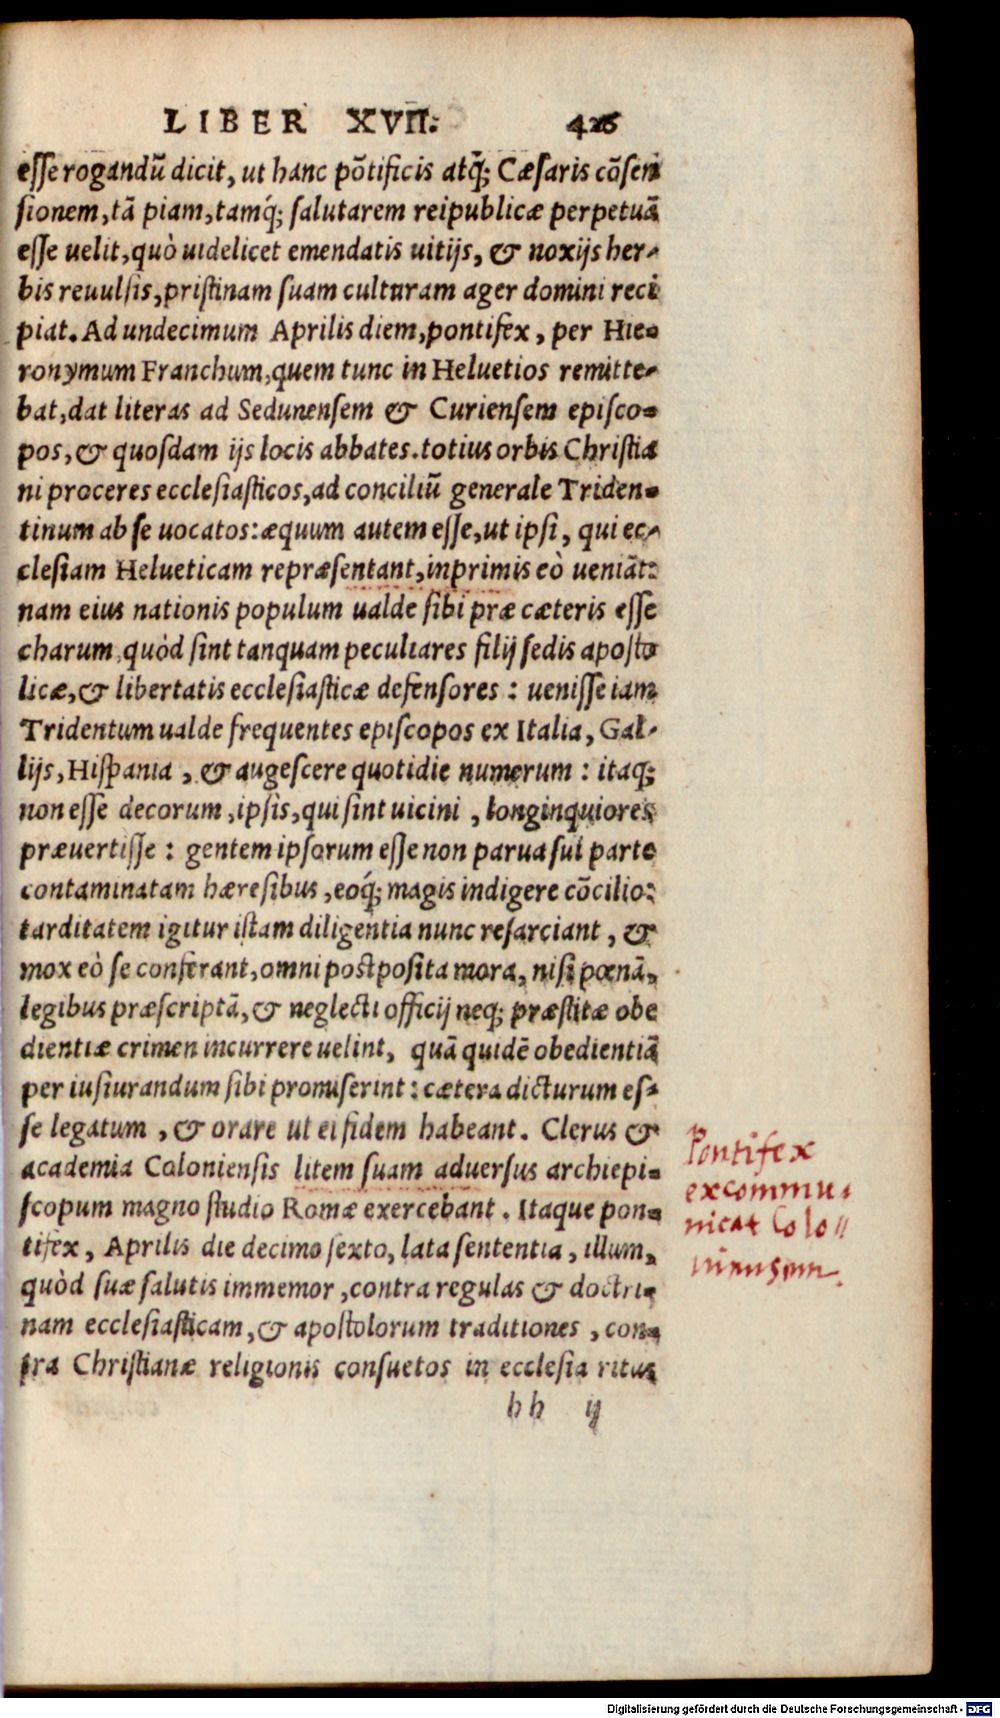 LIBER XVII. 426
esse rogandũ dicit, ut hanc põtificis atq́; Cæsaris cõsen
sionem, tã piam, tamq́; salutarem reipublicæ perpetuã
esse uelit, quò uidelicet emendatis uitijs, & noxijs her-
bis reuulsis, pristinam suam culturam ager domini reci
piat. Ad undecimum Aprilis diem, pontifex, per Hie-
ronymum Franchum, quem tunc in Heluetios remitte-
bat, dat literas ad Sedunensem & Curiensem episco-
pos, & quosdam ijs locis abbates. totius orbis Christia
ni proceres ecclesiasticos, ad conciliũ generale Triden-
tinum ab se uocatos: æquum autem esse, ut ipsi, qui ec-
clesiam Helueticam repræsentant, inprimis eò ueniãt:
nam eius nationis populum ualde sibi præ cæteris esse
charum, quòd sint tanquam peculiares filij sedis aposto
licæ, & libertatis ecclesiasticæ defensores: uenisse iam
Tridentum ualde frequentes episcopos ex Italia, Gal-
lijs, Hispania, & augescere quotidie numerum: itaq;
non esse decorum, ipsis, qui sint uicini, longinquiores
præuertisse: gentem ipsorum esse non parua sui parte
contaminatam hæresibus, eoq́; magis indigere cõcilio:
tarditatem igitur istam diligentia nunc resarciant, &
mox eò se conferant, omni postposita mora, nisi pœnã,
legibus præscriptã, & neglecti officij neq; præstitæ obe
dientiæ crimen incurrere uelint, quã quidẽ obedientiã
per iusiurandum sibi promiserint: cætera dicturum es-
se legatum, & orare ut ei fidem habeant. Clerus &
academia Coloniensis litem suam aduersus archiepi-
scopum magno studio Romæ exercebant. Itaque pon-
tifex, Aprilis die decimo sexto, lata sententia, illum,
quòd suæ salutis immemor, contra regulas & doctri-
nam ecclesiasticam, & apostolorum traditiones, con-
tra Christianæ religionis consuetos in ecclesia ritus
hh ij
Pontifex
excommu-
nicat Colo//
niensem.
Digitalisierung gefördert durch die Deutsche Forschungsgemeinschaft - DFG